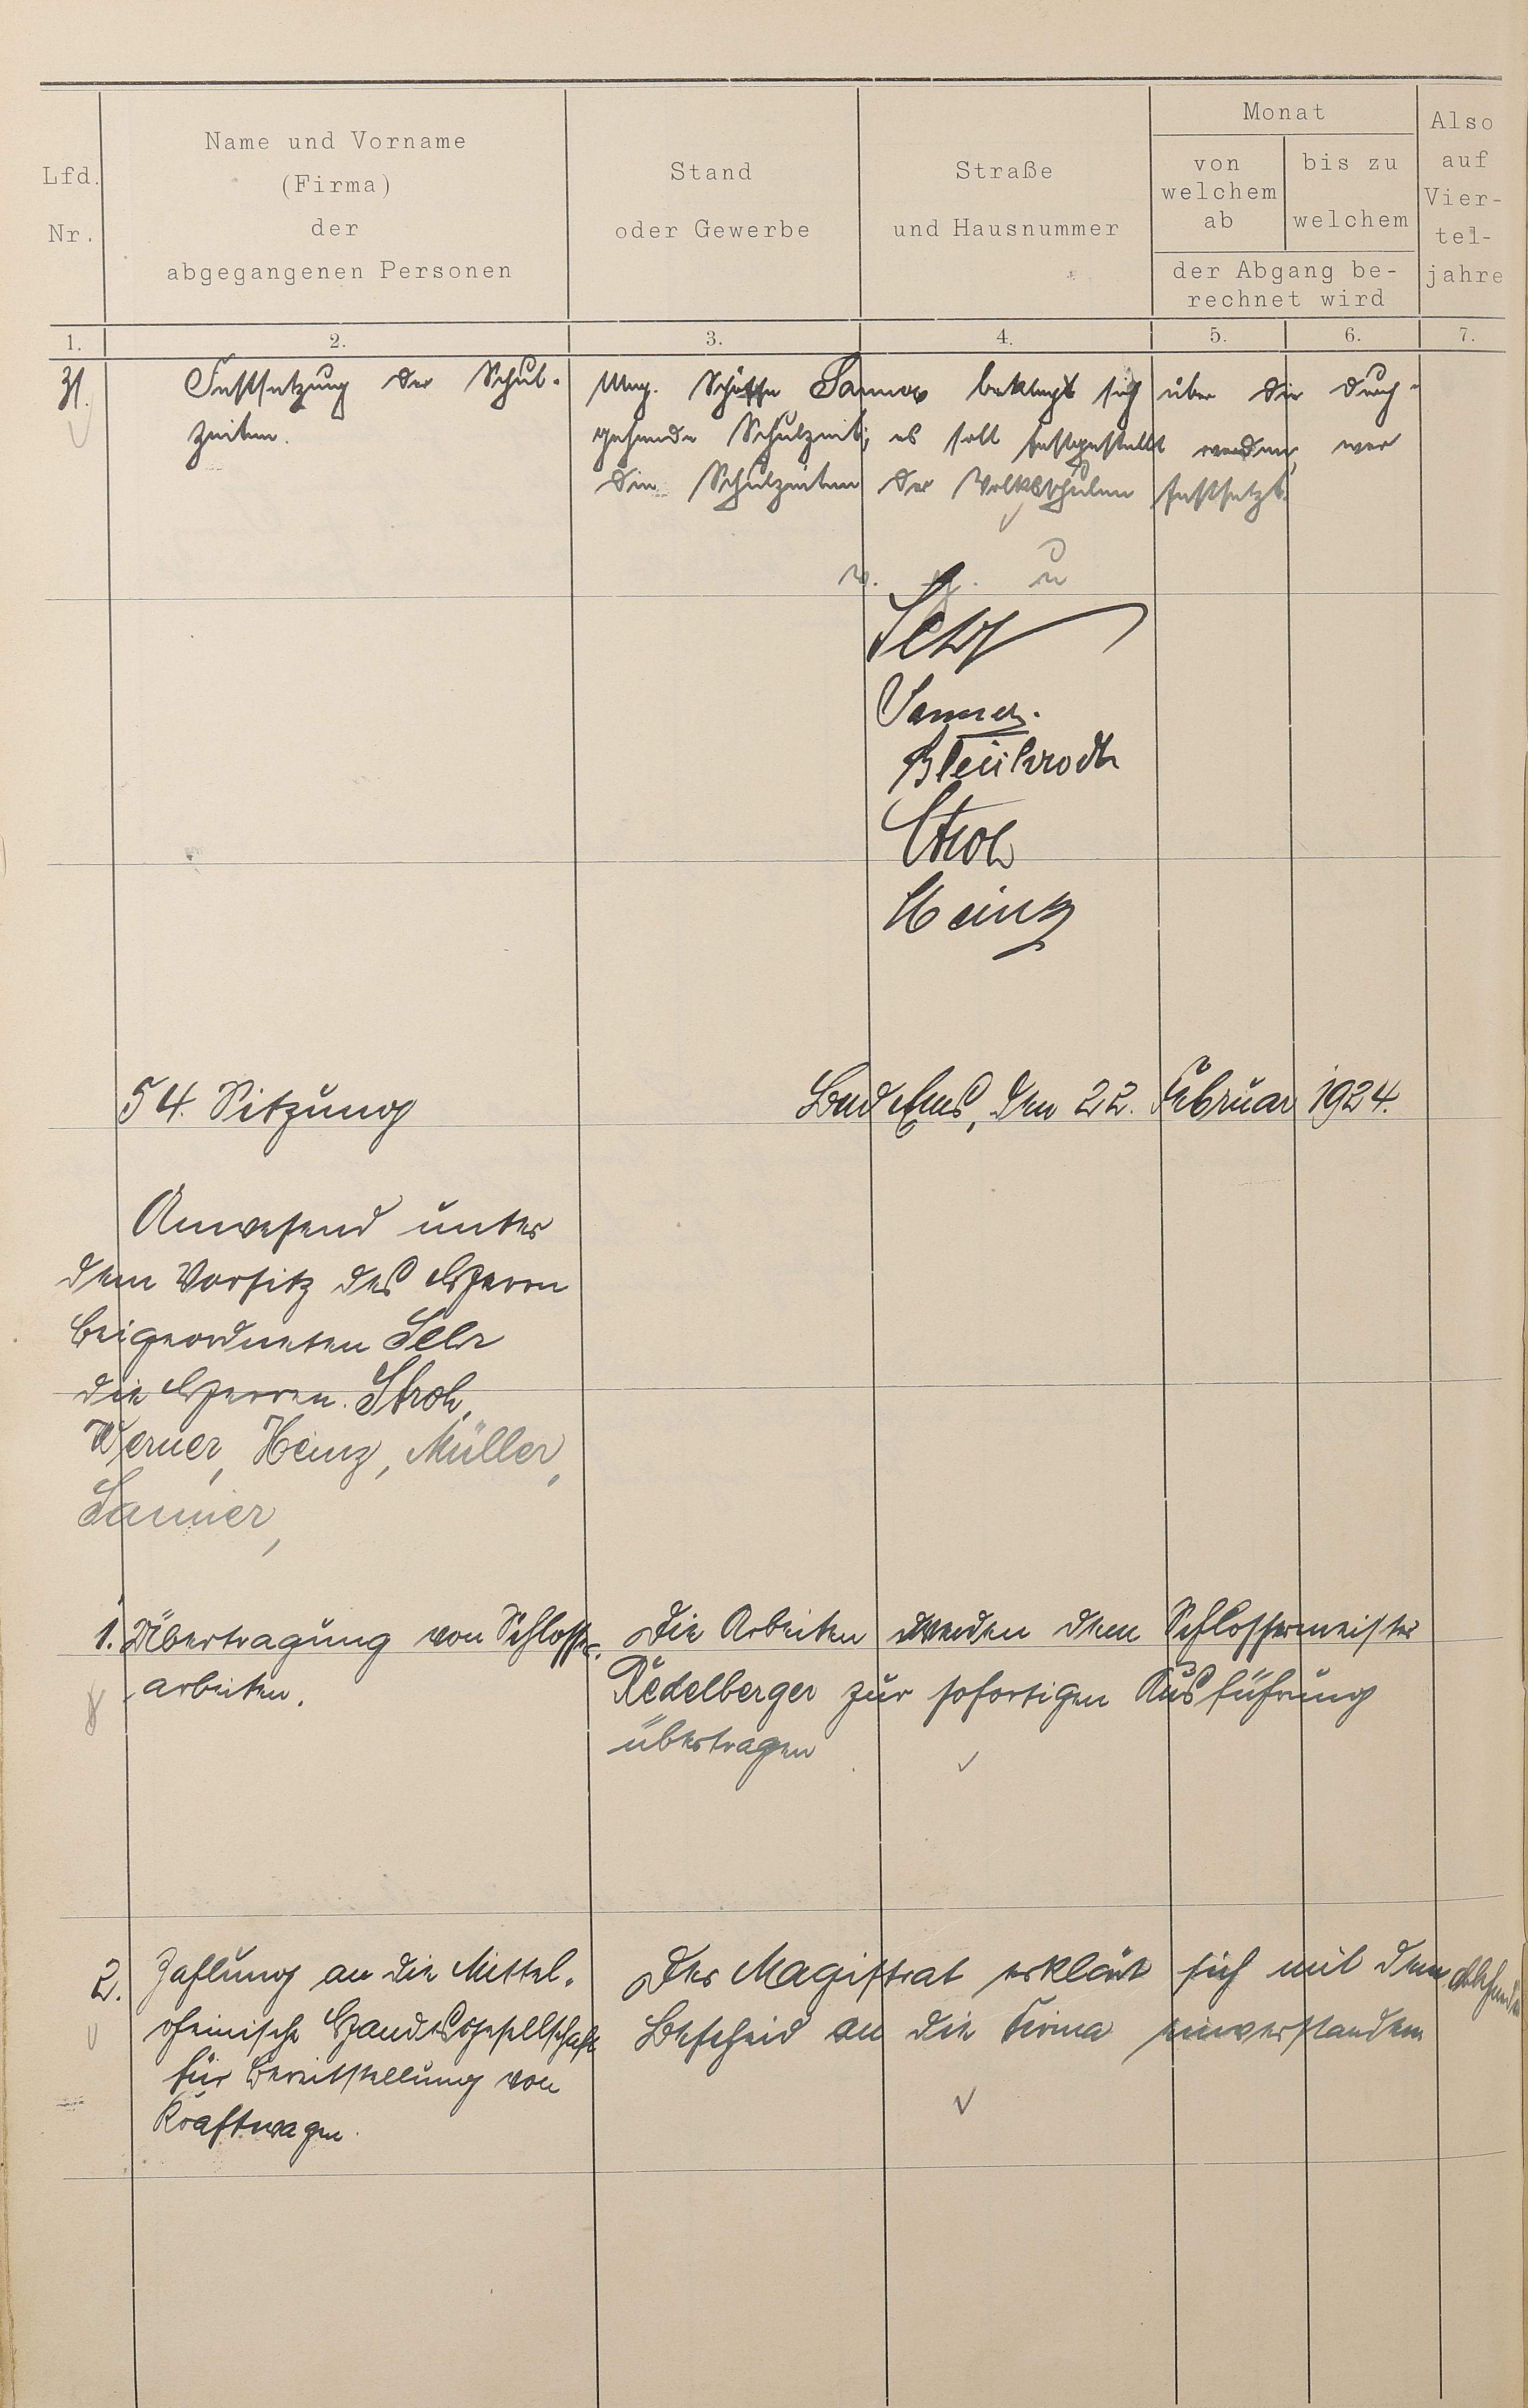 Lfd. Nr.
Name und Vorname
(Firma)
der
abgegangenen Personen
Stand
oder Gewerbe
Straße
und Hausnummer
Monat
von
welchem
ab
bis zu
welchem
der Abgang be-
rechnet wird
Also
auf
Vier-
tel-
jahre
1. 2. 3. 4. 5. 6. 7.
31. Festsetzung der Schul-
zeiten.
Mag. Schöffe Sanner beklagt sich über die durch-
gehende Schulzeit; es soll festgestellt werden, wer
die Schulzeiten der Volksschulen festsetzt.
v. g. u
Sanner.
Bleikrodt
Stroh
Heinz
54. Sitzung
Bad Ems, den 22. Februar 1924.
Anwesend unter
dem Vorsitz des Herrn
Beigeordneten
die Herren. Stroh,
Werner, Heinz, Müller,
Sanner,
1. Übertragung von Schlosser-
arbeiten.
Die Arbeiten werden dem Schlossermeister
Redelberger zur sofortigen Ausführung
übertragen
2. Zahlung an die Mittel-
rheinische Handelsgesellschaft
für Bereitstellung von
Kraftwagen.
Der Magistrat erklärt sich mit dem
Bescheid an die Firma einverstanden